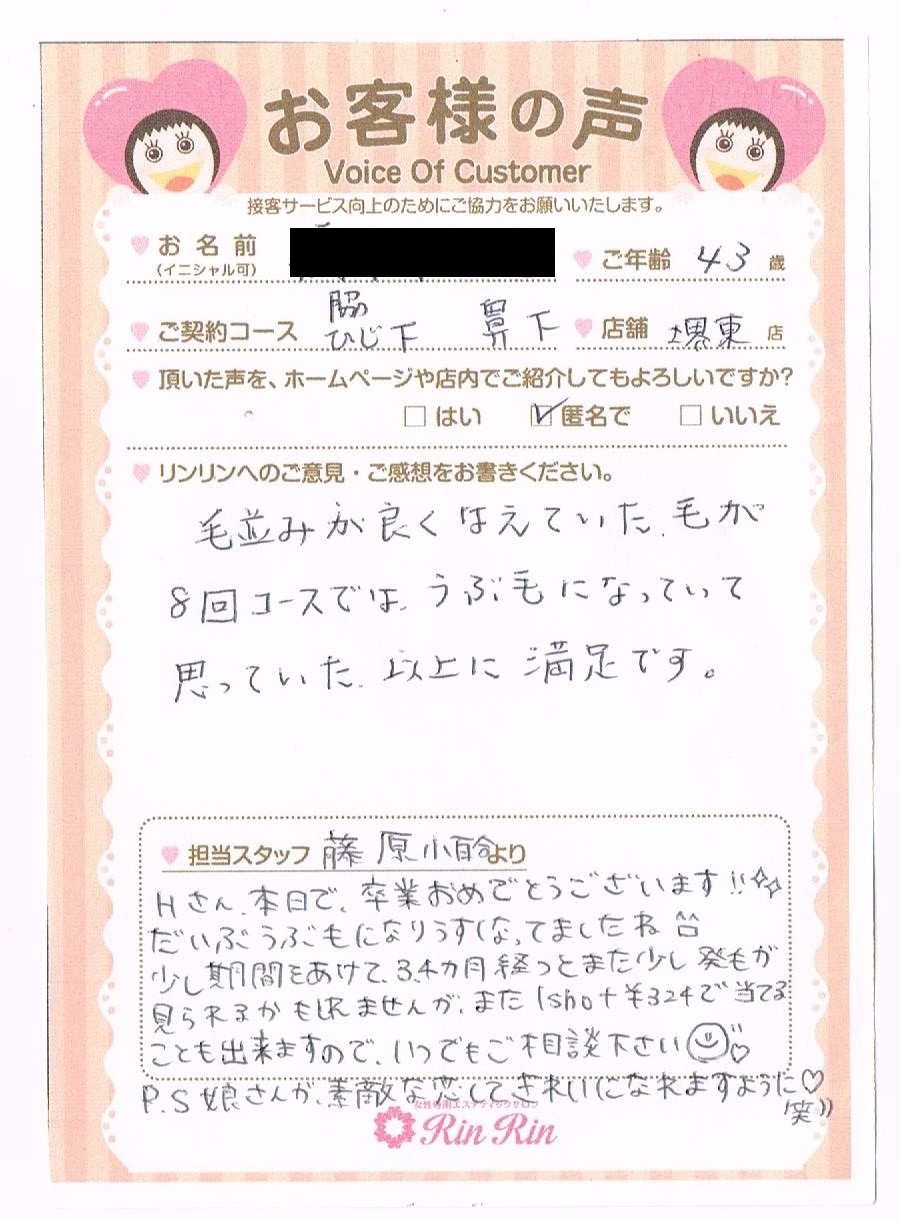 お客様の声
Voice Of Customer
接客サービス向上のためにご協力をお願いいたします。
お名前
(イニシャル可)
ご年齢 43 歳
脇
ご契約コース ひじ下 鼻下
店舗 堺東 店
頂いた声を、ホームページや店内でご紹介してもよろしいですか?
□はい ☑匿名で □いいえ
リンリンへのご意見・ご感想をお書きください。
毛並みが良くはえていた、毛が
8回コースでは、うぶ毛になっていて
思っていた、以上に満足です。
担当スタッフ 藤原 より
Hさん、本日で、卒業おめでとうございます!!
だいぶうぶ毛になりうすくなってましたね
少し期間をあけて、3、4カ月経つとまた少し発毛が
見られるかもしれませんが、また1shot¥324で当てる
ことも出来ますので、いつでもご相談下さい♡
P.S 娘さんが、素敵な恋してきれいになれますように♡
笑))
女性専用エステティックサロン
Rin Rin